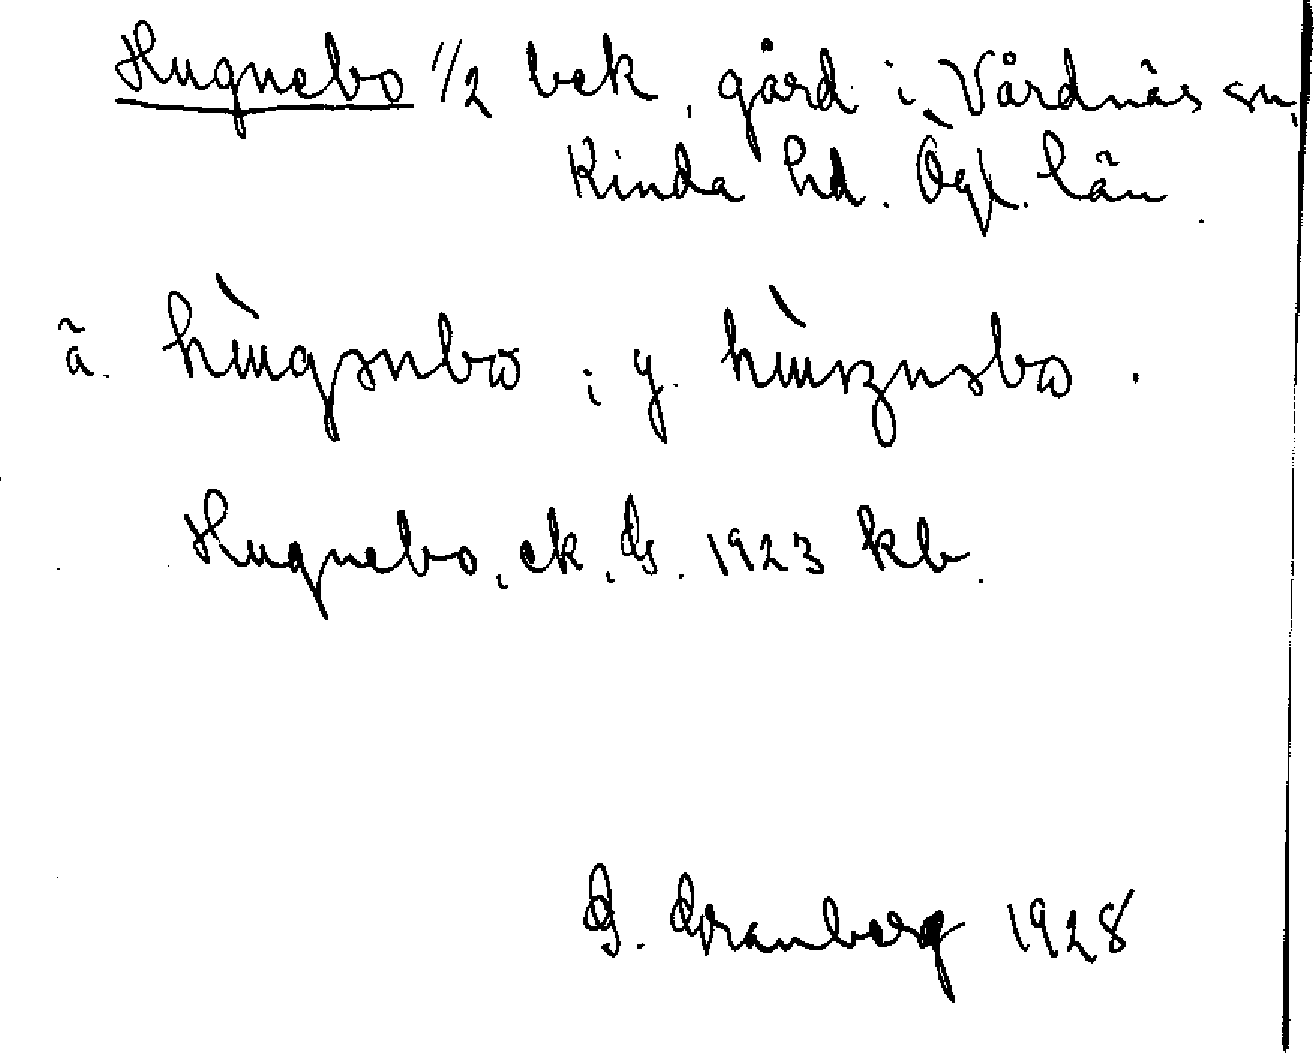 Hugnebo 1/2 bek, gård i Vårdnäs sn,
Kinda hd. Ögl. län.
ä. hùgənbo ; y.
Hugnebo, ek. 1923 kb.
G. Granberg 1928